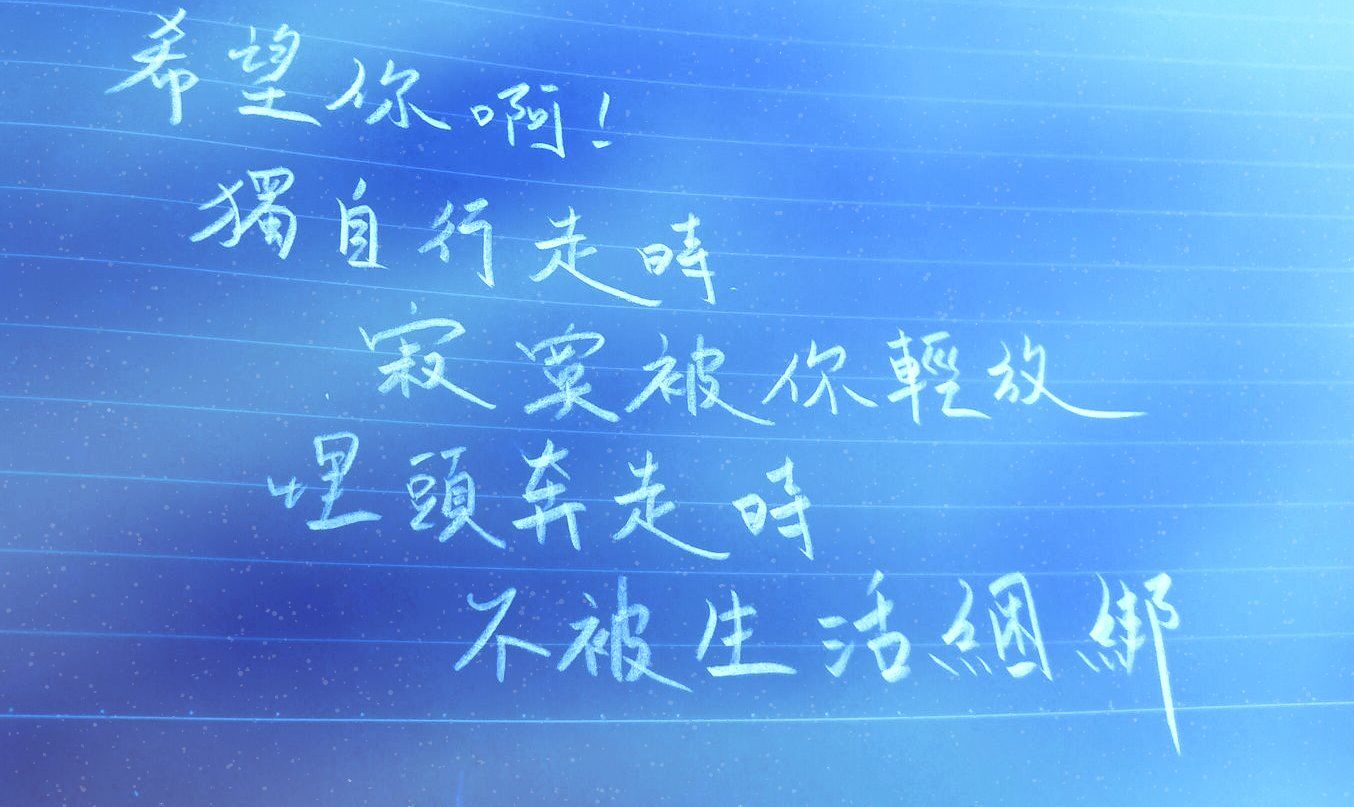 希望你啊!
獨自行走時
寂寞被你輕放
埋頭奔走時
不被生活綑綁